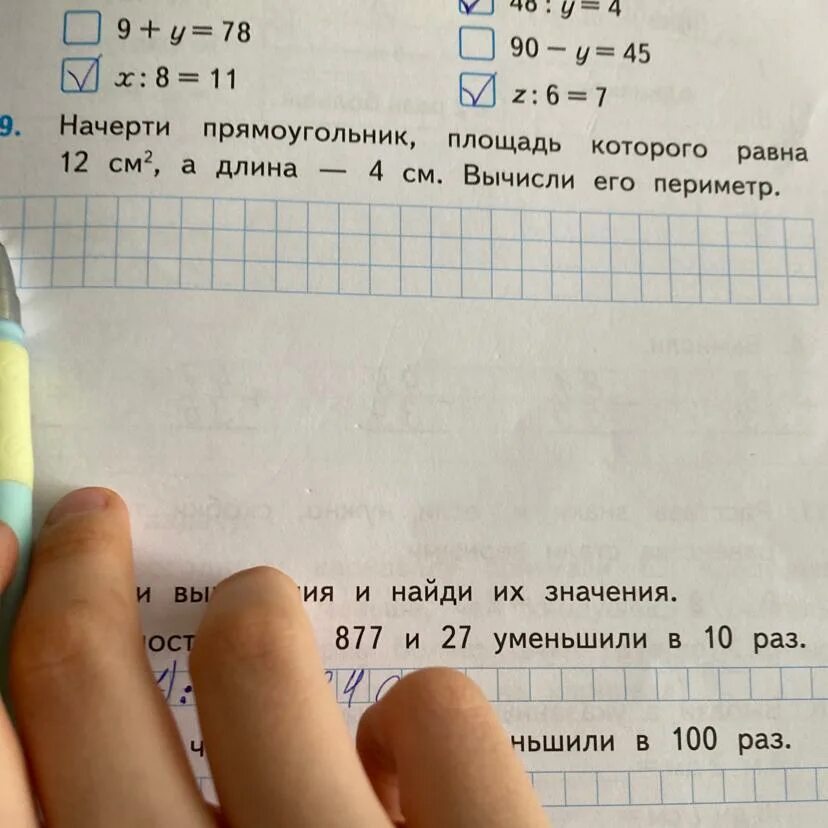 48 : y = 4
9 + y = 78
90 − y = 45
x : 8 = 11
z : 6 = 7
9. Начерти прямоугольник, площадь которого равна
12 см², а длина — 4 см. Вычисли его периметр.
и найди их значения.
877 и 27 уменьшили в 10 раз.
в 100 раз.